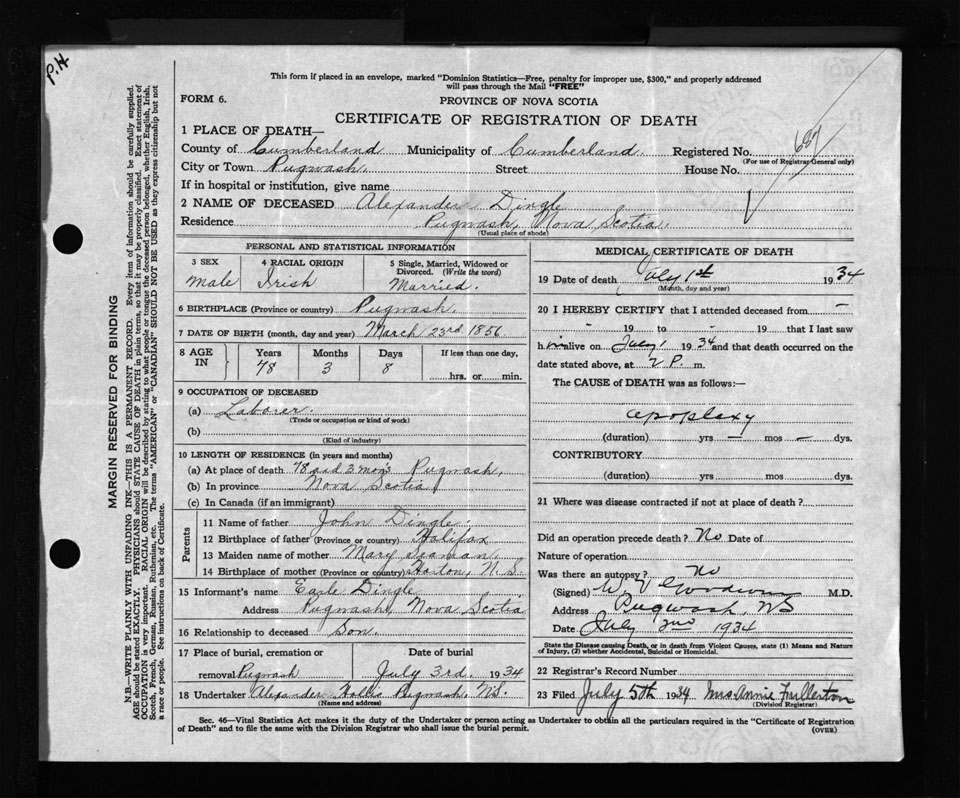 P.H.
This form if placed in an envelope, marked "Dominion Statistics—Free, penalty for improper use, $300," and properly addressed
will pass through the Mail "FREE"
FORM 6.
PROVINCE OF NOVA SCOTIA
CERTIFICATE OF REGISTRATION OF DEATH
1 PLACE OF DEATH—
County of Cumberland Municipality of Cumberland. Registered No. 687
(For use of Registrar General only)
City or Town Pugwash. Street House No.
If in hospital or institution, give name
2 NAME OF DECEASED Alexander Dingle
Residence Pugwash, Nova Scotia.
(Usual place of abode)
PERSONAL AND STATISTICAL INFORMATION
3 SEX 4 RACIAL ORIGIN 5 Single, Married, Widowed or
Divorced. (Write the word)
Male Irish Married.
6 BIRTHPLACE (Province or country) Pugwash.
7 DATE OF BIRTH (month, day and year) March 23rd 1856
8 AGE IN Years Months Days If less than one day,
78 3 8 hrs. or min.
9 OCCUPATION OF DECEASED
(a) Laborer.
(Trade or occupation or kind of work)
(b)
(Kind of industry)
10 LENGTH OF RESIDENCE (in years and months)
(a) At place of death 78 and 3 mons Pugwash,
(b) In province Nova Scotia
(c) In Canada (if an immigrant)
Parents
11 Name of father John Dingle.
12 Birthplace of father (Province or country) Halifax
13 Maiden name of mother Mary Seaman
14 Birthplace of mother (Province or country) Horton, N.S.
15 Informant's name Earle Dingle
Address Pugwash, Nova Scotia
16 Relationship to deceased Son.
17 Place of burial, cremation or Date of burial
removal Pugwash July 3rd. 1934
18 Undertaker Alexander Hollis Pugwash, N.S.
(Name and address)
MEDICAL CERTIFICATE OF DEATH
19 Date of death July 1st 1934
(Month, day and year)
20 I HEREBY CERTIFY that I attended deceased from -
- 19 to - 19 that I last saw
him alive on July 1 1934 and that death occurred on the
date stated above, at 2 P. m.
The CAUSE of DEATH was as follows:—
apoplexy
(duration) yrs — mos — dys.
CONTRIBUTORY
(duration) yrs. mos. dys.
21 Where was disease contracted if not at place of death?
Did an operation precede death? No Date of
Nature of operation
Was there an autopsy? No
(Signed) W. V. Goodwin M.D.
Address Pugwash, NS
Date July 2nd 1934
State the Disease causing Death, or in death from Violent Causes, state (1) Means and Nature
of Injury, (2) whether Accidental, Suicidal or Homicidal.
22 Registrar's Record Number
23 Filed July 5th 1934 Mrs. Annie Fullerton
(Division Registrar)
Sec. 46—Vital Statistics Act makes it the duty of the Undertaker or person acting as Undertaker to obtain all the particulars required in the "Certificate of Registration
of Death" and to file the same with the Division Registrar who shall issue the burial permit.
(OVER)
MARGIN RESERVED FOR BINDING
N.B.—WRITE PLAINLY WITH UNFADING INK—THIS IS A PERMANENT RECORD. Every item of information should be carefully supplied.
AGE should be stated EXACTLY. PHYSICIANS should STATE CAUSE OF DEATH in plain terms, so that it may be properly classified. Exact statement of
OCCUPATION is very important. RACIAL ORIGIN will be described by stating to what people or tongue the deceased person belonged, whether English, Irish,
Scotch, French, German, Russian, Ruthenian, etc. The terms "AMERICAN" or "CANADIAN" SHOULD NOT BE USED as they express citizenship but not
a race or people. See instructions on back of Certificate.